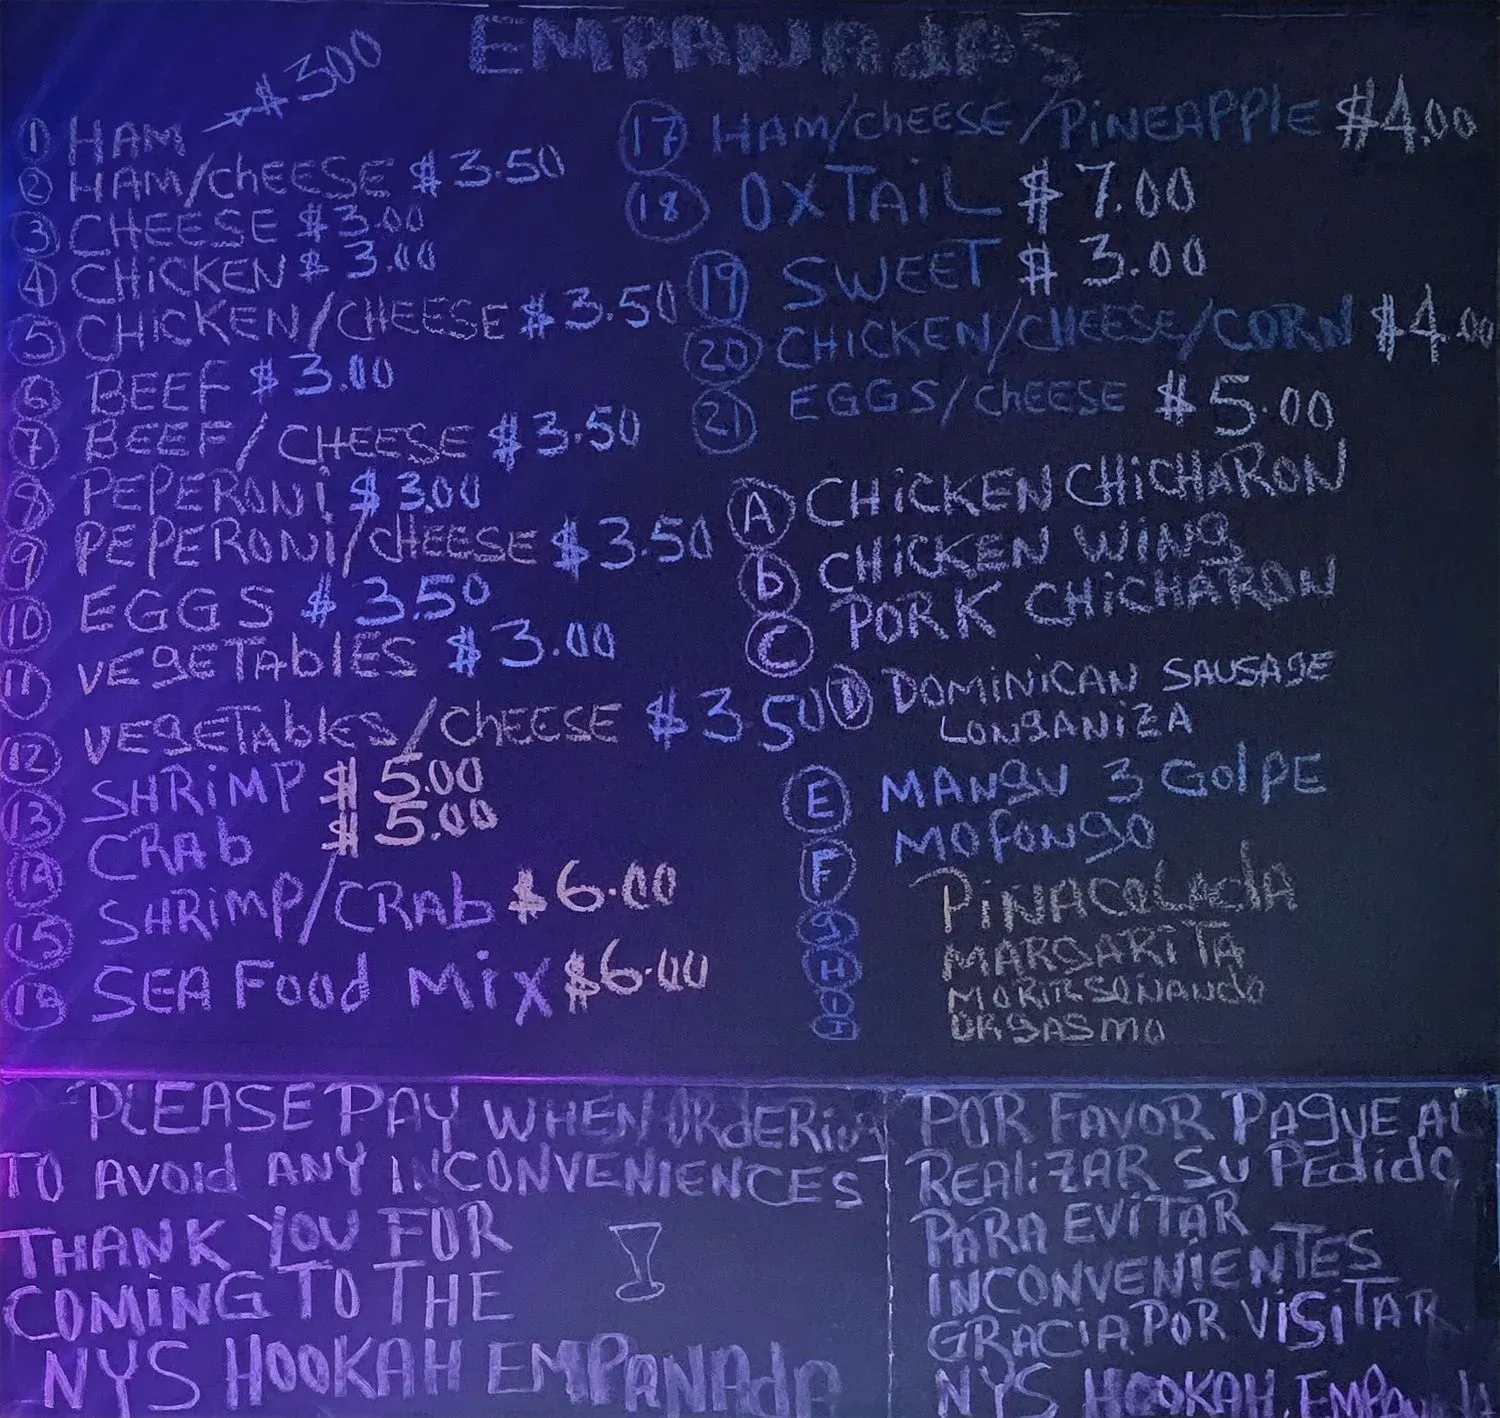 EMPANAdAS
1 HAM → $300
2 HAM/chEESE $3.50
3 CHEESE $3.00
4 CHiCKEN $3.00
5 CHICKEN/CHEESE $3.50
6 BEEF $3.00
7 BEEF/CHEESE $3.50
8 PEPERONi $3.00
9 PEPERONi/cHEESE $3.50
10 EGGS $3.50
11 VEgETAblES $3.00
12 VEgETAbles/ChEESE $3.50
13 SHRiMP $5.00
14 CRAb $5.00
15 SHRiMP/CRAb $6.00
16 SEA Food Mix $6.00
17 HAM/chEESE/PiNEAPPlE $4.00
18 OXTAiL $7.00
19 SWEET $3.00
20 CHICKEN/CHEESE/CORN $4.00
21 EGGS/chEESE $5.00
A CHiCKEN CHiCHARON
b CHiCKEN WiNg
C PORK CHiCHARON
D DOMiNiCAN SAUSAgE
LONgANiZA
E MANgU 3 GolpE
F MOfoNgO
g PiNACOLAdA
H MARgARiTA
I MORiR SOÑANdO
J ORgASMO
PLEASE PAY WHEN ORdERiNg
TO AVOId ANY INCONVENiENCES
THANK YOU FOR
COMiNG TO THE
NYS HOOKAH EMPANAdA
POR FAVOR PAgUE Al
REAliZAR SU PEdido
PARA EViTAR
INCONVENiENTES
GRACiA POR ViSiTAR
NYS HOOKAH EMPANAdA